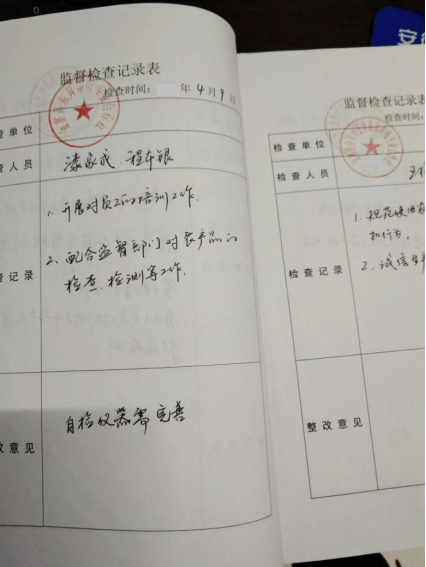 监督检查记录表
检查时间: 年4月9日
查单位
查人员
1、开展对员工的培训工作.
2、配合监督部门对农产品的
检查、检测等工作.
查记录
自检仪器需完善
改意见
监督检查记录表
检查时间:
检查单位
检查人员
王
1、规范使用农
和行为。
2、诚信生产
检查记录
整改意见